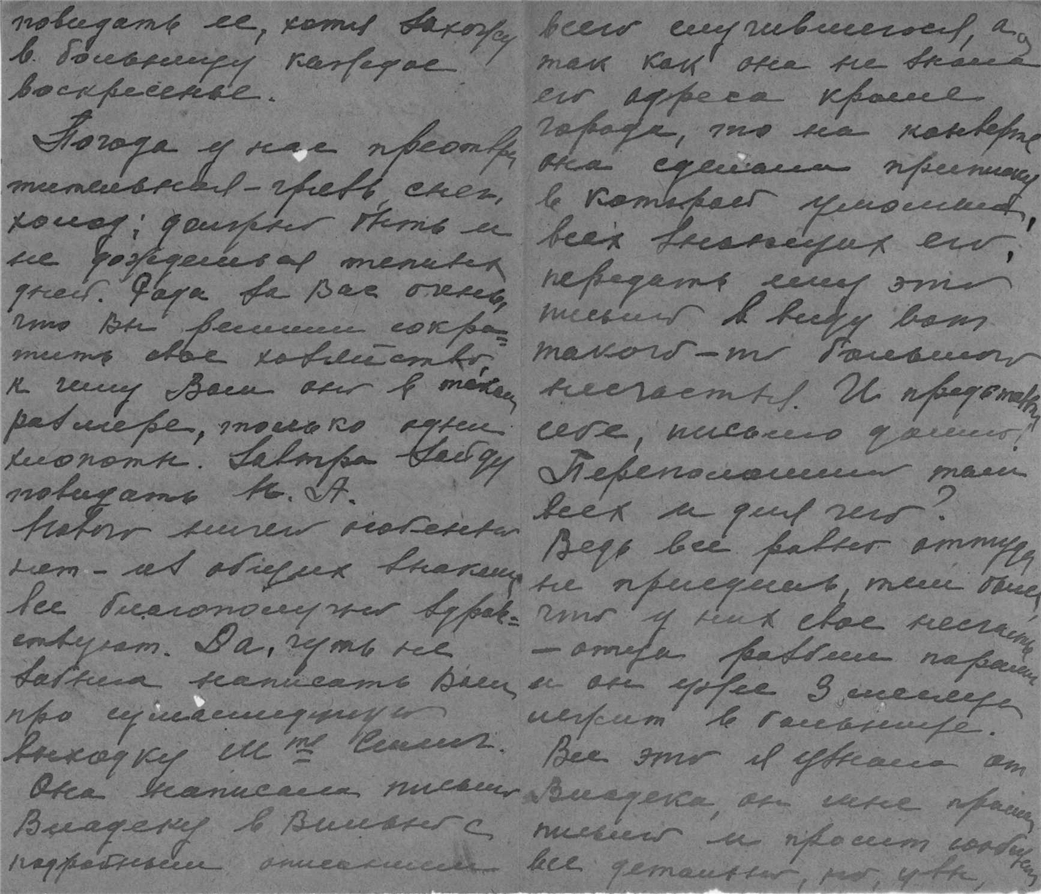 повидать ее, хотя захожу
в больницу каждое
воскресенье.
Погода у нас преотвра
тительная – грязь, снег,
холод; должно быть и
не дождешься теплых
дней. Рада за Вас очень,
что Вы решили сокра=
тить свое хозяйство,
к чему Вам оно в таком
размере, только одни
хлопоты. Завтра зайду
повидать К. А.
Нового ничего особенно
нет – из общих знакомых
все благополучно здрав=
ствуют. Да, чуть не
забыла написать Вам
про сумасшедшую
выходку M me
Она написала письмо
Владеку в Вильно с
подробным описанием
всего случившегося, а
так как она не знала
его адреса кроме
города, то на конверте
она сделала приписку
в которой умоляет,
всех знающих его,
передать ему это
письмо в виду вот
такого-то большого
несчастья. И представьте
себе, письмо дошло!
Переполошила там
всех и для чего?
Ведь все равно оттуда
не приедешь, тем более
что у них свое несчастье
– отца разбил паралич
и он уже 3 месяца
лежит в больнице.
Все это я узнала от
Владека, он мне прислал
письмо и просит сообщить
все детально, но, увы,